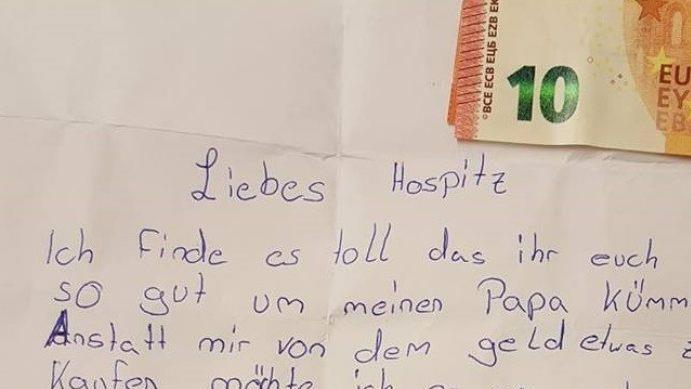 BCE ECB ЕЦБ EZB EK
10
EU
EY
EB
Liebes Hospitz
Ich Finde es toll das ihr euch
so gut um meinen Papa Kümm
Anstatt mir von dem geld etwas z
Kaufen möchte ich